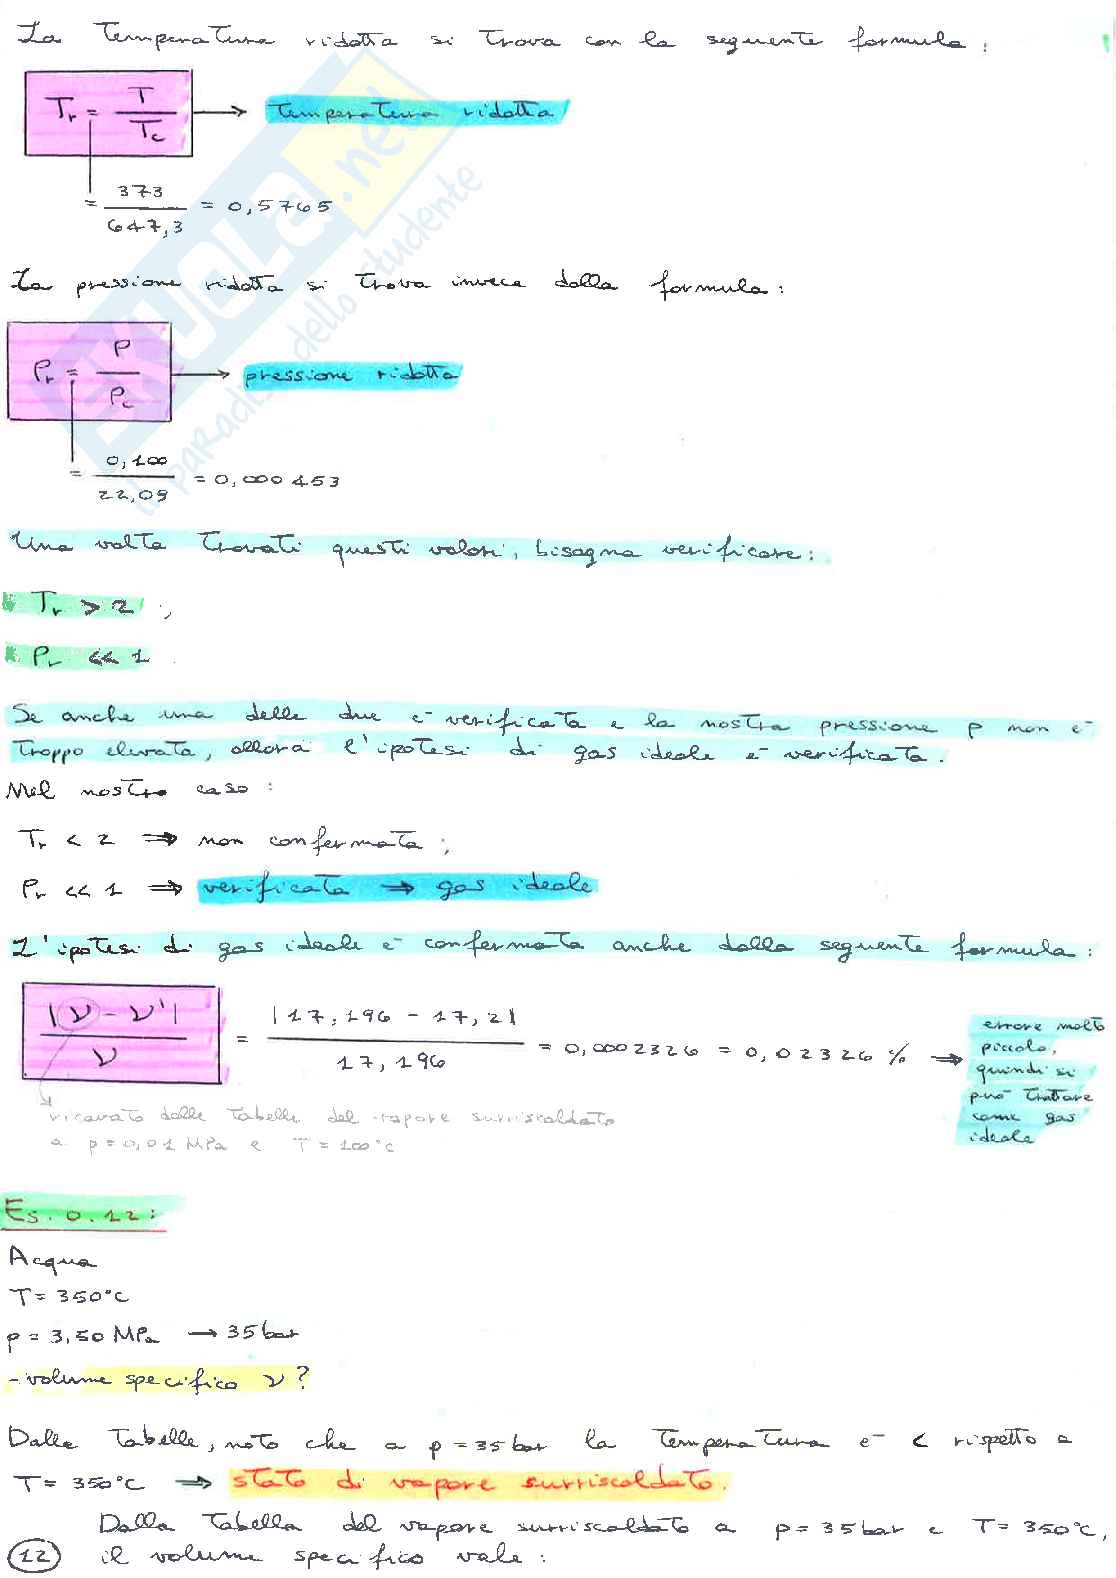 La temperatura ridotta si trova con la seguente formula:
Tr = T / Tc → temperatura ridotta
= 373 / 647,3 = 0,5765
La pressione ridotta si trova invece dalla formula:
Pr = P / Pc → pressione ridotta
= 0,100 / 22,09 = 0,000453
Una volta trovati questi valori, bisogna verificare:
Tr > 2 ;
Pr << 1
Se anche una delle due è verificata e la nostra pressione p non è
troppo elevata, allora l'ipotesi di gas ideale è verificata.
Nel nostro caso:
Tr < 2 ⇒ non confermata;
Pr << 1 ⇒ verificata → gas ideale
L'ipotesi di gas ideale è confermata anche dalla seguente formula:
|ν - ν'| / ν = |17,196 - 17,2| / 17,196 = 0,0002326 = 0,02326 % →
errore molto
piccolo,
quindi si
può trattare
come gas
ideale
ricavato dalle tabelle del vapore surriscaldato
a p = 0,01 MPa e T = 100°C
Es. 0.12:
Acqua
T = 350°C
p = 3,50 MPa → 35 bar
- volume specifico ν?
Dalle tabelle, noto che a p = 35 bar la temperatura è < rispetto a
T = 350°C → stato di vapore surriscaldato.
Dalla tabella del vapore surriscaldato a p = 35 bar e T = 350°C,
12 il volume specifico vale:
SKUOLA.net
il paradiso dello studente